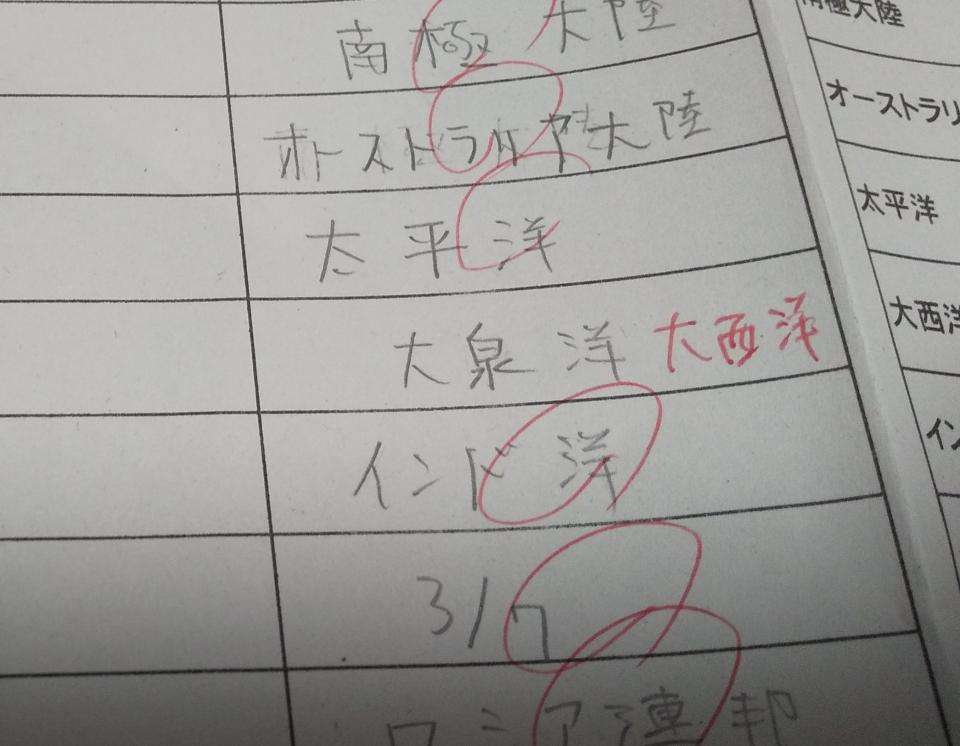 南極大陸
オーストラリア大陸
太平洋
大泉洋 大西洋
インド洋
3/7
ロシア連邦
南極大陸
オーストラリ
太平洋
大西洋
イン